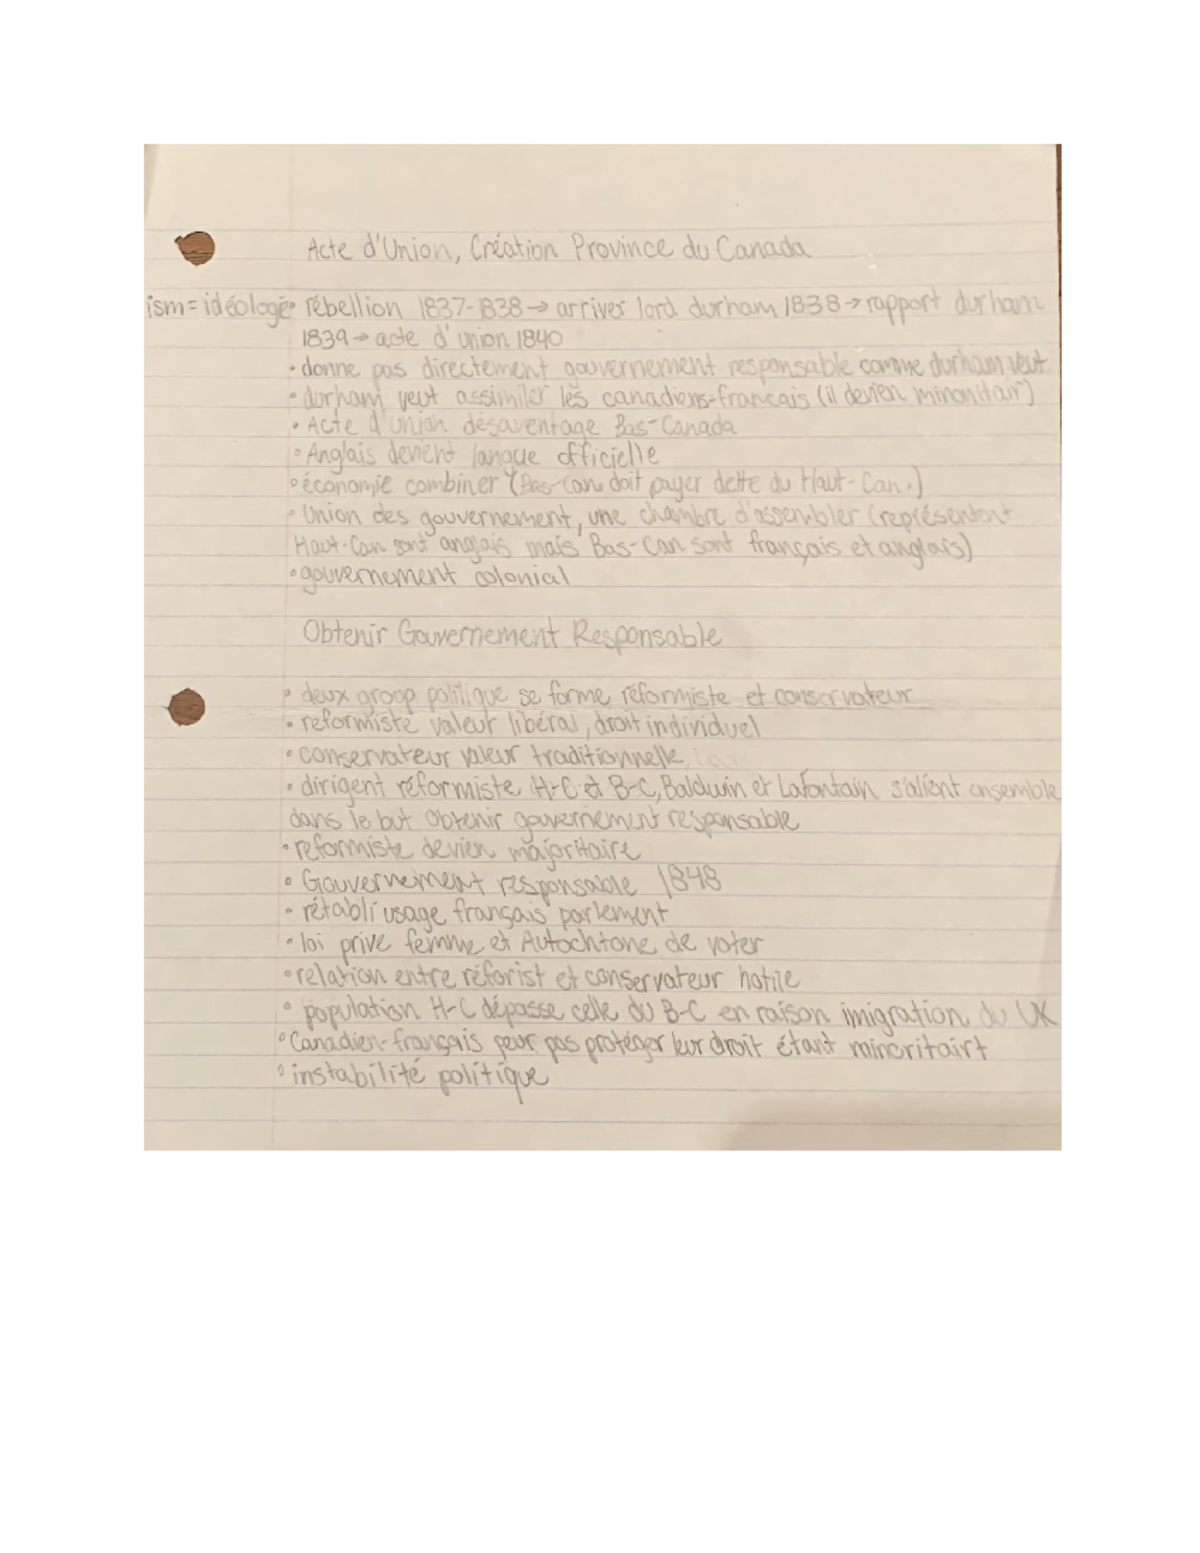 Acte d'Union, Création Province du Canada
ism = idéologie • rébellion 1837-1838 → arriver lord durham 1838 → rapport durham
1839 → acte d'union 1840
• donne pas directement gouvernement responsable comme durham veut
• durham veut assimiler les canadiens-français (il devien minoritair)
• Acte d'union désaventage Bas-Canada
• Anglais devient langue officielle
• économie combiner (Bas-Can. doit payer dette du Haut-Can.)
• Union des gouvernement, une chambre d'assembler (représentant
Haut-Can sont anglais mais Bas-Can sont français et anglais)
• gouvernement colonial
Obtenir Gouvernement Responsable
• deux groop politique se forme réformiste et conservateur
• réformiste valeur libéral, droit individuel
• conservateur valeur traditionnelle
• dirigent réformiste H-C et B-C, Baldwin et Lafontain s'alient ensemble
dans le but obtenir gouvernement responsable
• reformiste devien majoritaire
• Gouvernement responsable 1848
• rétabli usage français parlement
• loi prive femme et Autochtone de voter
• relation entre réforist et conservateur hotile
• population H-C dépasse celle du B-C en raison imigration du UK
• Canadien-français peur pas protéger leur droit étant minoritairt
• instabilité politique